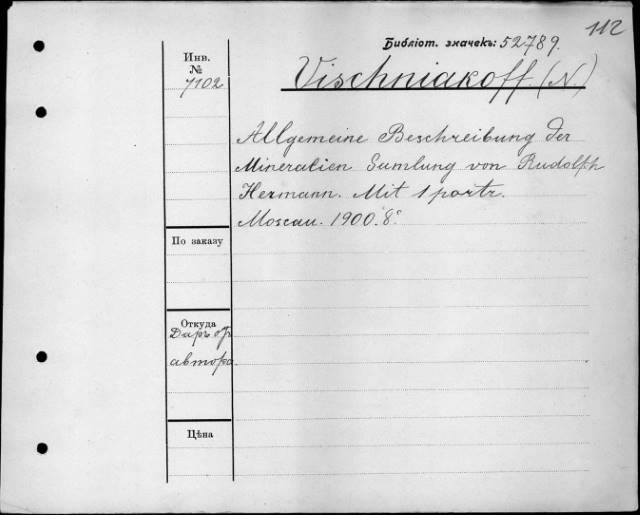 112
Библіот. значекъ: 52789.
Инв.
№
7102
Vischniakoff (N)
Allgemeine Beschreibung der
Mineralien Samlung von Rudolph
Hermann. Mit 1 portr.
Moscau. 1900. 8°.
По заказу
Откуда
Даръ отъ
автора
Цѣна